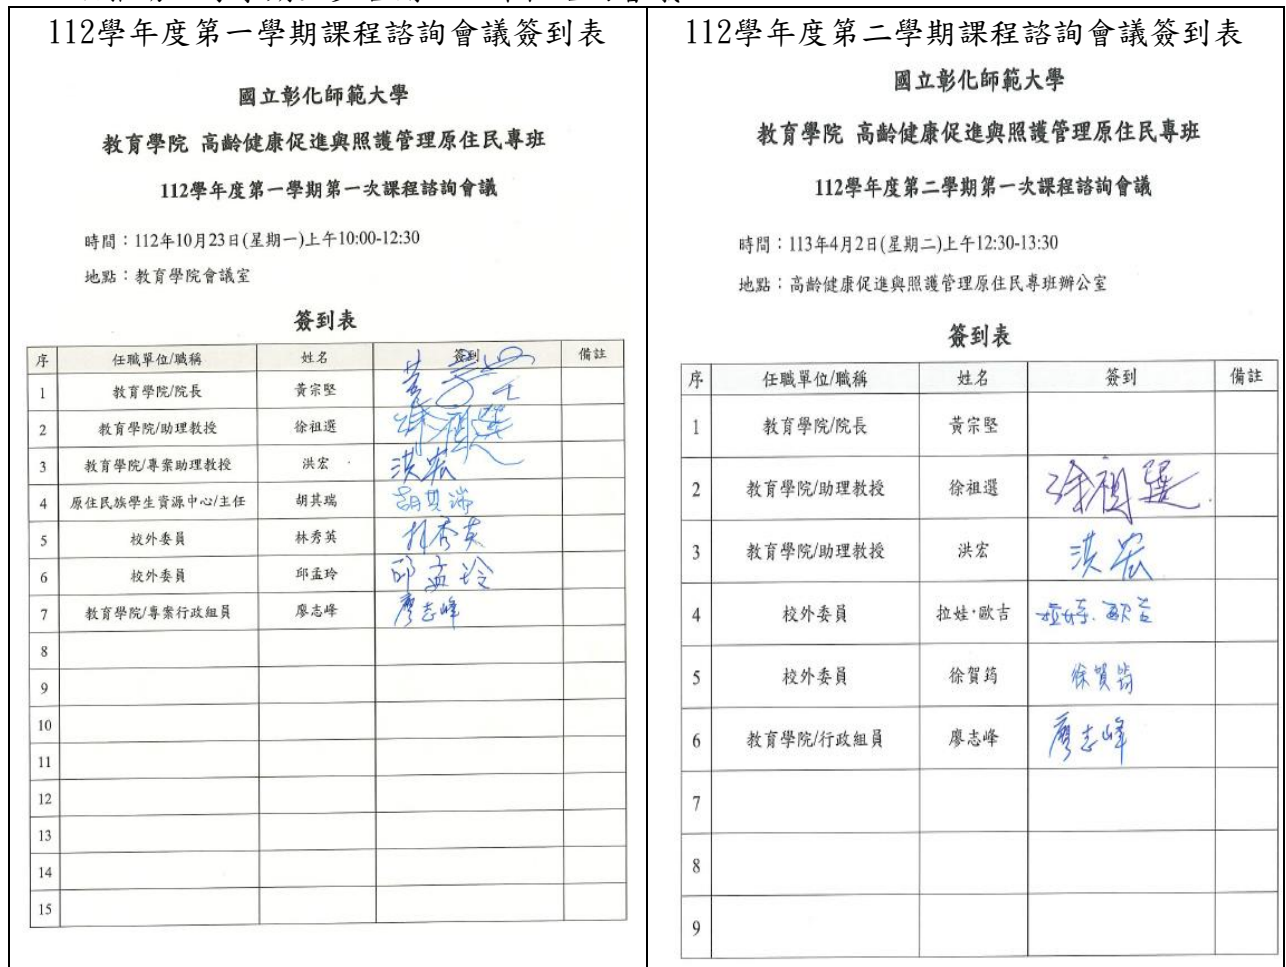 112學年度第一學期課程諮詢會議簽到表
國立彰化師範大學
教育學院 高齡健康促進與照護管理原住民專班
112學年度第一學期第一次課程諮詢會議
時間：112年10月23日(星期一)上午10:00-12:30
地點：教育學院會議室
簽到表
序 任職單位/職稱 姓名 簽到 備註
1 教育學院/院長 黃宗堅 黃宗堅
2 教育學院/助理教授 徐祖選 徐祖選
3 教育學院/專案助理教授 洪宏 洪宏
4 原住民族學生資源中心/主任 胡其瑞 胡其瑞
5 校外委員 林秀英 林秀英
6 校外委員 邱孟玲 邱孟玲
7 教育學院/專案行政組員 廖志峰 廖志峰
8
9
10
11
12
13
14
15
112學年度第二學期課程諮詢會議簽到表
國立彰化師範大學
教育學院 高齡健康促進與照護管理原住民專班
112學年度第二學期第一次課程諮詢會議
時間：113年4月2日(星期二)上午12:30-13:30
地點：高齡健康促進與照護管理原住民專班辦公室
簽到表
序 任職單位/職稱 姓名 簽到 備註
1 教育學院/院長 黃宗堅
2 教育學院/助理教授 徐祖選 徐祖選
3 教育學院/助理教授 洪宏 洪宏
4 校外委員 拉娃·歐吉 拉娃·歐吉
5 校外委員 徐賀筠 徐賀筠
6 教育學院/行政組員 廖志峰 廖志峰
7
8
9